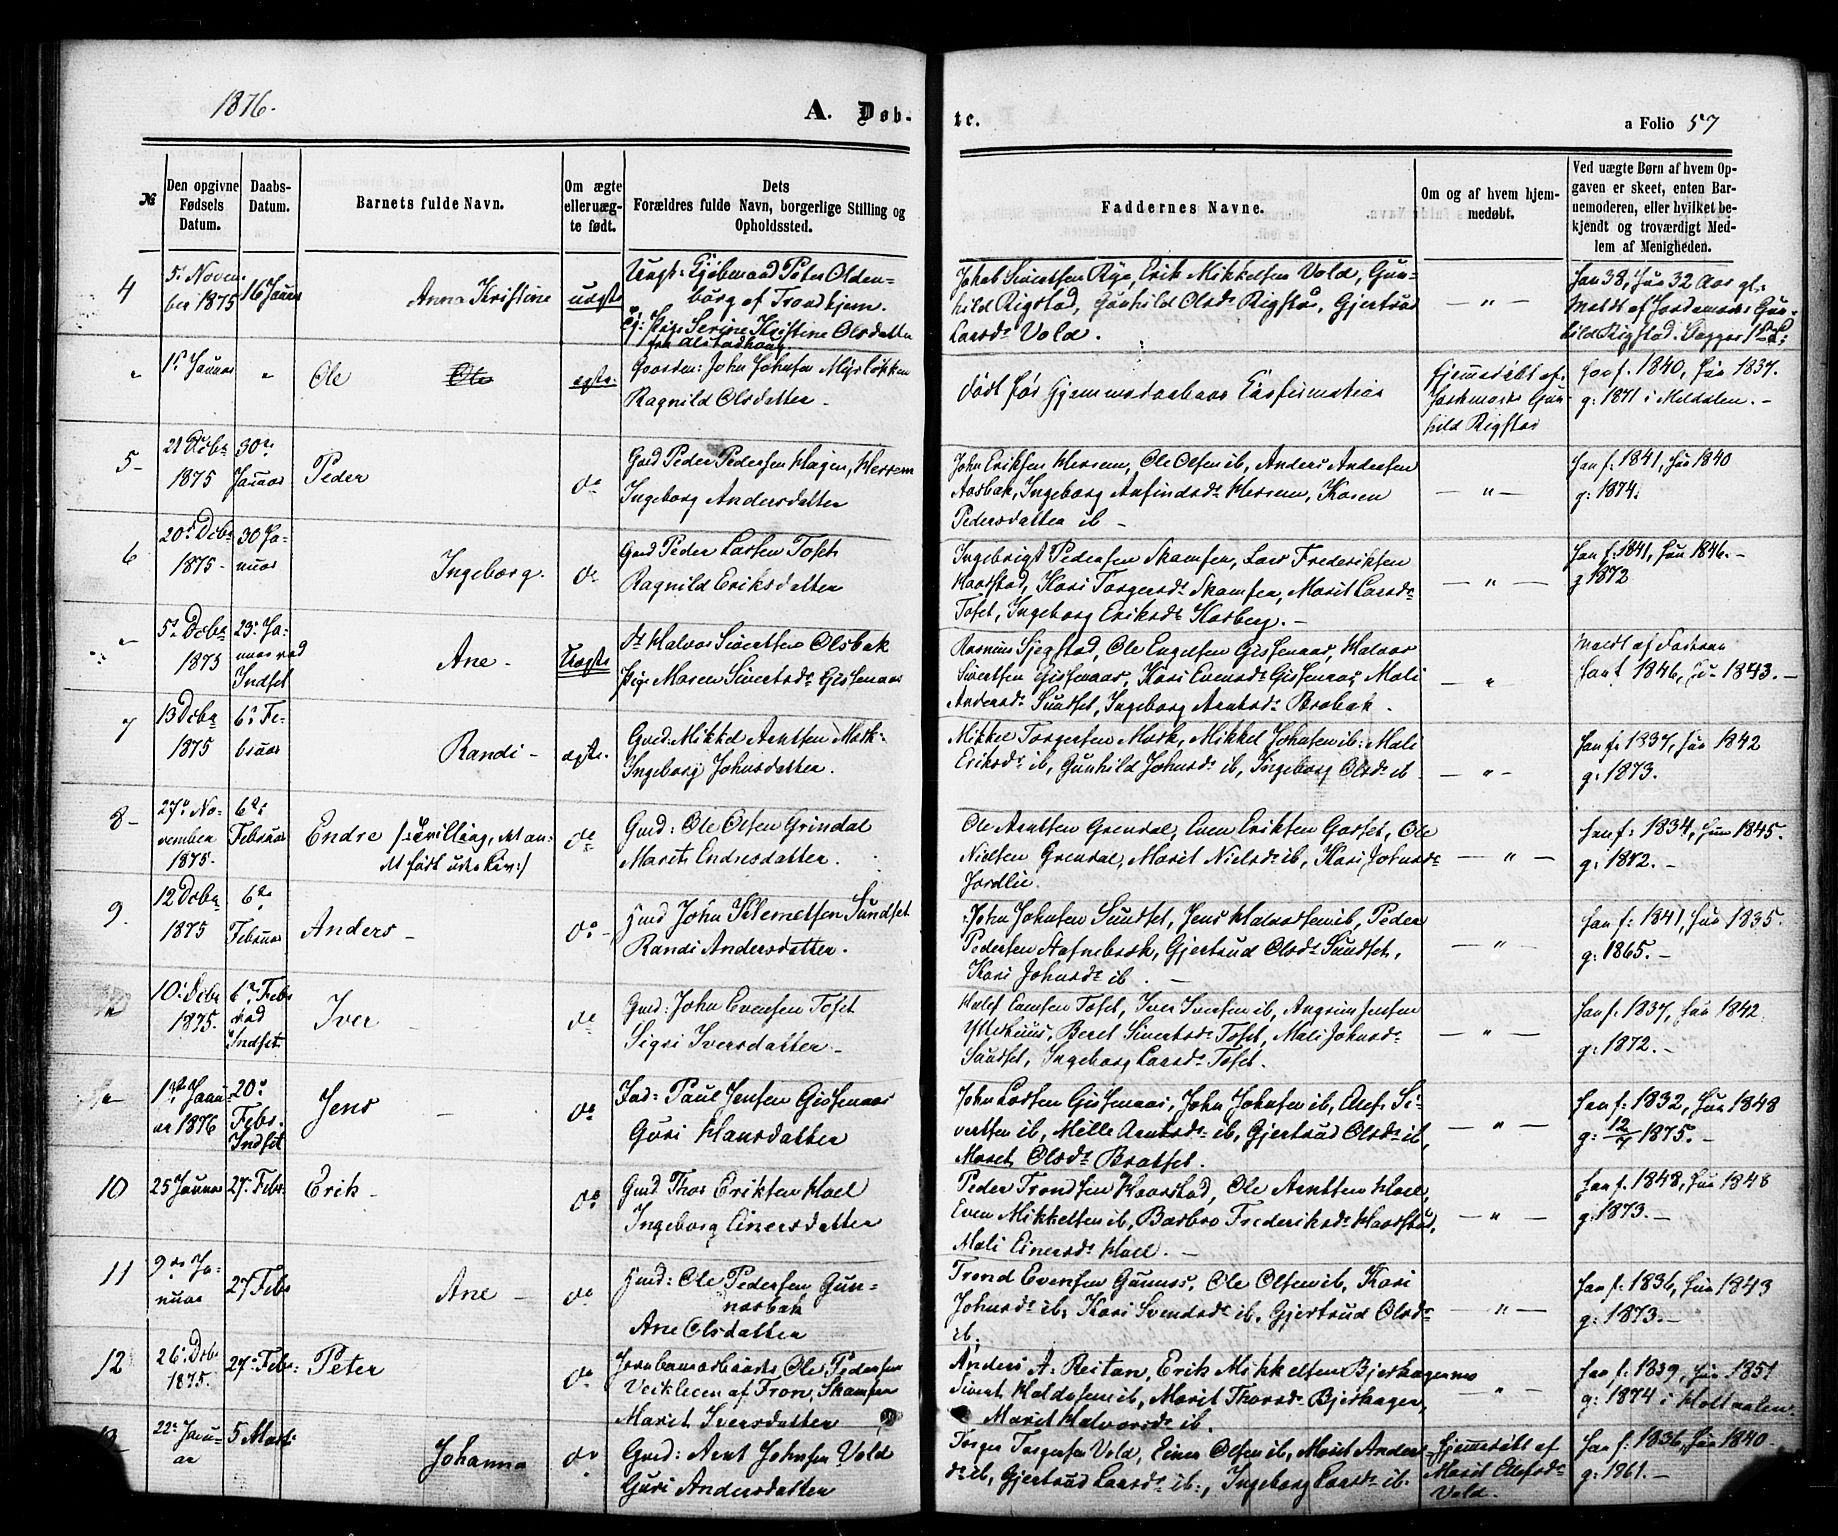 1876.
A. Døb-
te.
a Folio 57
№
Den opgivne Fødsels Datum.
Daabs-Datum.
Barnets fulde Navn.
Om ægte eller uæg-te født.
Dets Forældres fulde Navn, borgerlige Stilling og Opholdssted.
Faddernes Navne.
Om og af hvem hjem-medøbt.
Ved uægte Børn af hvem Op-gaven er skeet, enten Bar-nemoderen, eller hvilket be-kjendt og troværdigt Med-lem af Menigheden.
4
5. Novem-
ber 1875
16 Januar
Anna Kristine
uægte
Ungk: Kjøbmand Peter Olden-
borg af Trondhjem.
Pige Serine Kristine Olsdatter
fra Alstadhoug
Sivertsen Rye, Erik Mikkelsen Vold, Gun-
hild Rigstad, Gunhild Olsdr Rigstad, Gjertrud
Larsdr Vold.
— " —
Han 38, Hun 32 Aar gl.
Meldt af Jordemoder Gun-
hild Rigstad.
"
1ste Januar
"
Ole
ægte
John Johnsen Myrløkken
Ragnild Olsdatter
død før
Hjemmedøbt af
Jordmoder Gun-
hild Rigstad
Han f. 1840, Hun 1837.
g: 1871 i Meldalen. -
5
21 Debr
1875
30te
Januar
Peder
do
Gmd Peder Pedersen Hagen, Herrem
Ingeborg Andersdatter
John Eriksen Herrem, Ole Olsen ib, Anders Andersen
Aarbak, Ingeborg Arfindsdr Herrem, Karen
Pedersdatter ib -
— " —
Han f: 1841, Hun 1840
g: 1874.
6
20de Debr
1875 -
30 Ja-
nuar
Ingeborg.
do
Gmd Peder Larsen Tofet
Ragnild Eriksdatter
Ingebrigt Pedersen Skamfer, Lars Frederiksen
Haarstad, Kari Torgersdr Skamfer, Marit Larsdr
Tofet, Ingeborg Eriksdr Kosberg. -
— " —
Han f: 1841, Hun 1846. -
g 1872
"
5te Debr
1875
23. Ja-
nuar ved
Indset
Ane -
Uægte
Halvor Sivertsen Olsbak
Pige Maren Sivertsdr Gissenaas
Rasmus Sjegstad, Ole Engelsen Gissenaas, Halvor
Sivertsen Gissenaas, Kari Evensdr Gissenaas, Mali
Andersdr Sundset, Ingeborg Arntsdr Brobak.
"
Meldt af Faderen
Han f 1846, Hun 1843. -
7
13 Debr
1875
6te Fe-
bruar
Randi -
ægte.
Gmd: Mikkel Arntsen Mærk
Ingeborg Johnsdatter.
Mikkel Torgersen Mærk, Mikkel Johnsen ib, Mali
Eriksdr ib, Gunhild Johnsdr ib, Ingeborg Olsdr ib
— " —
Han f: 1837, Hun 1842
g: 1873.
8 -
27de No-
vember
1875.
6te
Februar
Endre (: Tvilling, det an-
det født uden Liv:)
do
Gmd: Ole Olsen Grindal
Marit Endresdatter.
Ole Arntsen Grendal, Even Eriksen Gorset, Ole
Nielsen Grendal, Marit Nielsdr ib, Kari Johnsdr
Jordlie.
— " —
Han f: 1834, Hun 1845.
g: 1872. -
9.
12 Debr
1875
6te
Februar
Anders -
do -
Hmd John Klemetsen Sundset
Randi Andersdatter.
John Johnsen Sundset, Jens Halvorsen ib, Peder
Pedersen Stafnebrek, Gjertrud Olsdr Sundset,
Kari Johnsdr ib. -
— " —
Han f: 1841, Hun 1835.
g: 1865. -
10de Debr
1875.
6te Febr
ved
Indset
Iver -
do
Gmd: John Evensen Tofet
Sigri Iversdatter -
Evensen Tofet, Iver Iversen ib, Angrim Jensen
Ytterhuus, Beret Sivertsdr Tofet, Mali Johnsdr
Sundset, Ingeborg Larsdr Tofet.
— " —
Han f. 1837, Hun 1842
g: 1872. -
1ste Janu-
ar 1876
20de
Febr.
Indset
Jens -
do
Paul Jensen Gissenaas
Guri Hansdatter
John Larsen Gissenaas, John Johnsen ib, Olef Si-
vertsen ib, Mille Arntsdr ib, Gjertrud Olsdr ib,
Marit Olsdr Bratset.
— " —
Han f: 1832, Hun 1848
g: 12/7 1875. -
10
25 Januar
27. Febr.
Erik -
do
Gmd Thor Eriksen Hoel
Ingeborg Einersdatter
Peder Trondsen Haarstad, Ole Arntsen Hoel,
Even Mikkelsen ib, Barbro Frederiksdr Haarstad,
Mali Einersdr Hoel. -
— " —
Han f. 1848, Hun 1848
g: 1873. -
11
9de Ja-
nuar
27 Febr
Ane -
do
Hmd: Ole Pedersen Gun-
nesbak
Ane Olsdatter
Trond Evensen Gunnes, Ole Olsen ib, Kari
Johnsdr ib, Kari Svendsdr ib, Gjertrud Olsdr
ib.
" —
Han f: 1836, Hun 1843
g: 1873. -
12
26. Debr
1875.
27. Febr.
Peter
do
Jernbanearbeider Ole Pedersen
af Fron, Skamfer
Marit Iversdatter
Anders A. Reitan, Erik Mikkelsen Bjerkagernes
Sivert Haldosen ib, Marit Thorsdr Bjerkagen,
Marit Halvorsdr ib.
"
Han f: 1839, Hun 1851
g: 1874 i Holtaalen
13
22de Janu-
ar
5 Marts
Johanna
do
Gmd: Arnt Johnsen Vold
Guri Andersdatter
Torger Torgersen Vold, Einer Olsen ib, Marit Anders-
dr ib, Gjertrud Larsdr ib., Ingeborg Larsdr ib.
Hjemmedøbt af
Marit Olefsdr
Vold.
Han f: 1836, Hun 1840.
g: 1861. -